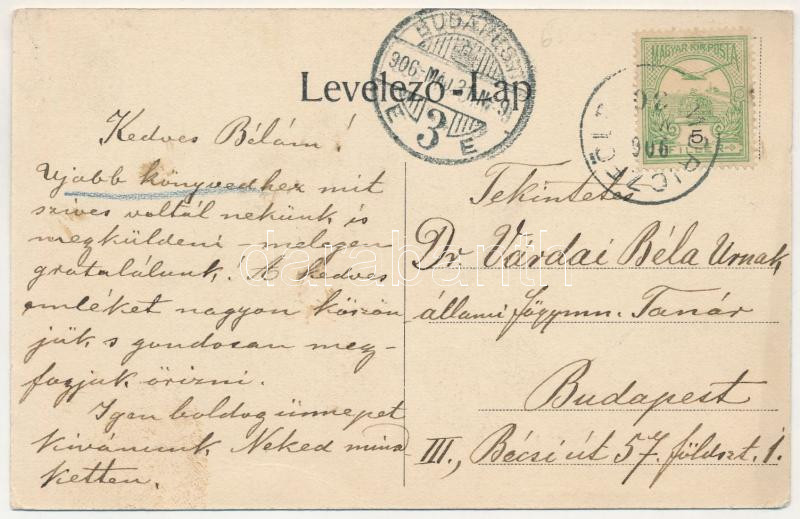 Levelező-Lap
BUDAPEST
906 MÁJ
3
E E
MAGYAR KIR. POSTA
5
MÓRICZFÖLD
906
Kedves Bélám!
Ujabb könyvedhez mit
szives voltál nekünk is
megküldeni – melegen
gratulálunk! A kedves
emléket nagyon köszön
jük s gondosan meg-
fogjuk őrizni.
Igen boldog ünnepet
kivánunk Neked mind
ketten.
Tekintetes
Dr. Várdai Béla Urnak
állami főgymn. Tanár
Budapest
III., Bécsi út 57. földszt. 1.
darabanth.com